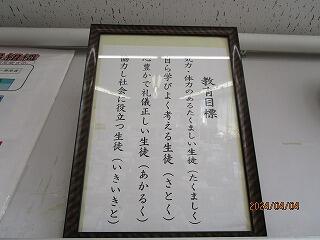 教育目標
気力・体力のあるたくましい生徒（たくましく）
自ら学びよく考える生徒（さとく）
心豊かで礼儀正しい生徒（あかるく）
協力し社会に役立つ生徒（いきいきと）
2024/04/04